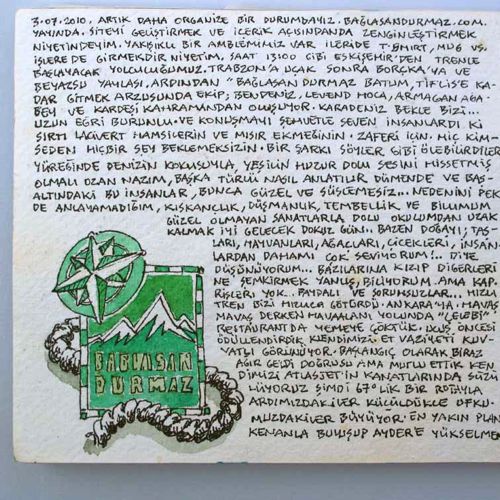 3.07.2010. ARTIK DAHA ORGANİZE BİR DURUMDAYIZ. BAĞLASANDURMAZ.COM.
YAYINDA. SİTEYİ GELİŞTİRMEK VE İÇERİK AÇISINDANDA ZENGİNLEŞTİRMEK
NİYETİNDEYİM. YAKIŞIKLI BİR AMBLEMİMİZ VAR İLERİDE T-SHIRT, MUG VS.
İŞLEREDE GİRMEKDİR NİYETİM. SAAT 13:00 GİBİ ESKİŞEHİR'DEN TRENLE
BAŞLAYACAK YOLCULUĞUMUZ. TRABZON'A UÇAK SONRA BORÇKA'YA VE
BEYAZSU YAYLASI. ARDINDAN "BAĞLASAN DURMAZ BATUM, TİFLİS'E KA-
DAR GİTMEK ARZUSUNDA EKİP; BENDENİZ, LEVEND HOCA, ARMAĞAN AĞA-
BEY VE KARDEŞİ KAHRAMANDAN OLUŞUYOR. KARADENİZ BEKLE BİZİ...
UZUN EĞRİ BURUNLU. VE KONUŞMAYI ŞEHVETLE SEVEN İNSANLARDI Kİ
SIRTI LACİVERT HAMSİLERİN VE MISIR EKMEĞİNİN. ZAFERİ İÇİN. HİÇ KİM-
SEDEN HİÇBİR ŞEY BEKLEMEKSİZİN. BİR ŞARKI SÖYLER GİBİ ÖLEBİLİRDİLER
YÜREĞİNDE DENİZİN KOKUSUYLA, YEŞİLİN HUZUR DOLU SESİNİ HİSSETMİŞ
OLMALI OZAN NAZIM, BAŞKA TÜRLÜ NASIL ANLATILIR DÜMENDE VE BAŞ-
ALTINDAKİ BU İNSANLAR, BUNCA GÜZEL VE SÜSLEMESİZ... NEDENİNİ PEK
DE ANLAYAMADIĞIM, KISKANÇLIK, DÜŞMANLIK, TEMBELLİK VE BİLUMUM
GÜZEL OLMAYAN SANATLARLA DOLU OKULUMDAN UZAK
KALMAK İYİ GELECEK DOKUZ GÜN.. BAZEN DOĞAYI, TAŞ-
LARI, HAYVANLARI, AĞAÇLARI, ÇİÇEKLERİ, İNSAN-
LARDAN DAHAMI ÇOK SEVİYORUM!.. DİYE
DÜŞÜNÜYORUM.. BAZILARINA KIZIP DİĞERLERİ-
NE ŞEMKİRMEK YANLIŞ, BİLİYORUM. AMA KAP-
RİSLERİ YOK.. FAYDALI VE SORUMSUZLAR... HIZLI
TREN BİZİ HIZLICA GÖTÜRDÜ. ANKARA'YA. HAVAŞ,
MAVAŞ DERKEN HAVAALANI YOLUNDA "LELEBİ"
RESTAURANTDA YEMEYE ÇÖKTÜK. UÇUŞ ÖNCESİ
ÖDÜLLENDİRDİK KENDİMİZİ. ET VAZİYETİ KUV-
VATLI GÖRÜNÜYOR. BAŞLANGIÇ OLARAK BİRAZ
AĞIR GELDİ DOĞRUSU AMA MUTLU ETTİK KEN-
DİMİZİ ATLASJET'İN KANATLARINDA SÜZÜ-
LÜYORUZ ŞİMDİ 67°LİK BİR ROTAYLA
ARDIMIZDAKİLER KÜÇÜLDÜKÇE UFKU-
MUZDAKİLER BÜYÜYOR. EN YAKIN PLAN
KENANLA BULUŞUP AYDER'E YÜKSELMEK
BAĞLASAN
DURMAZ